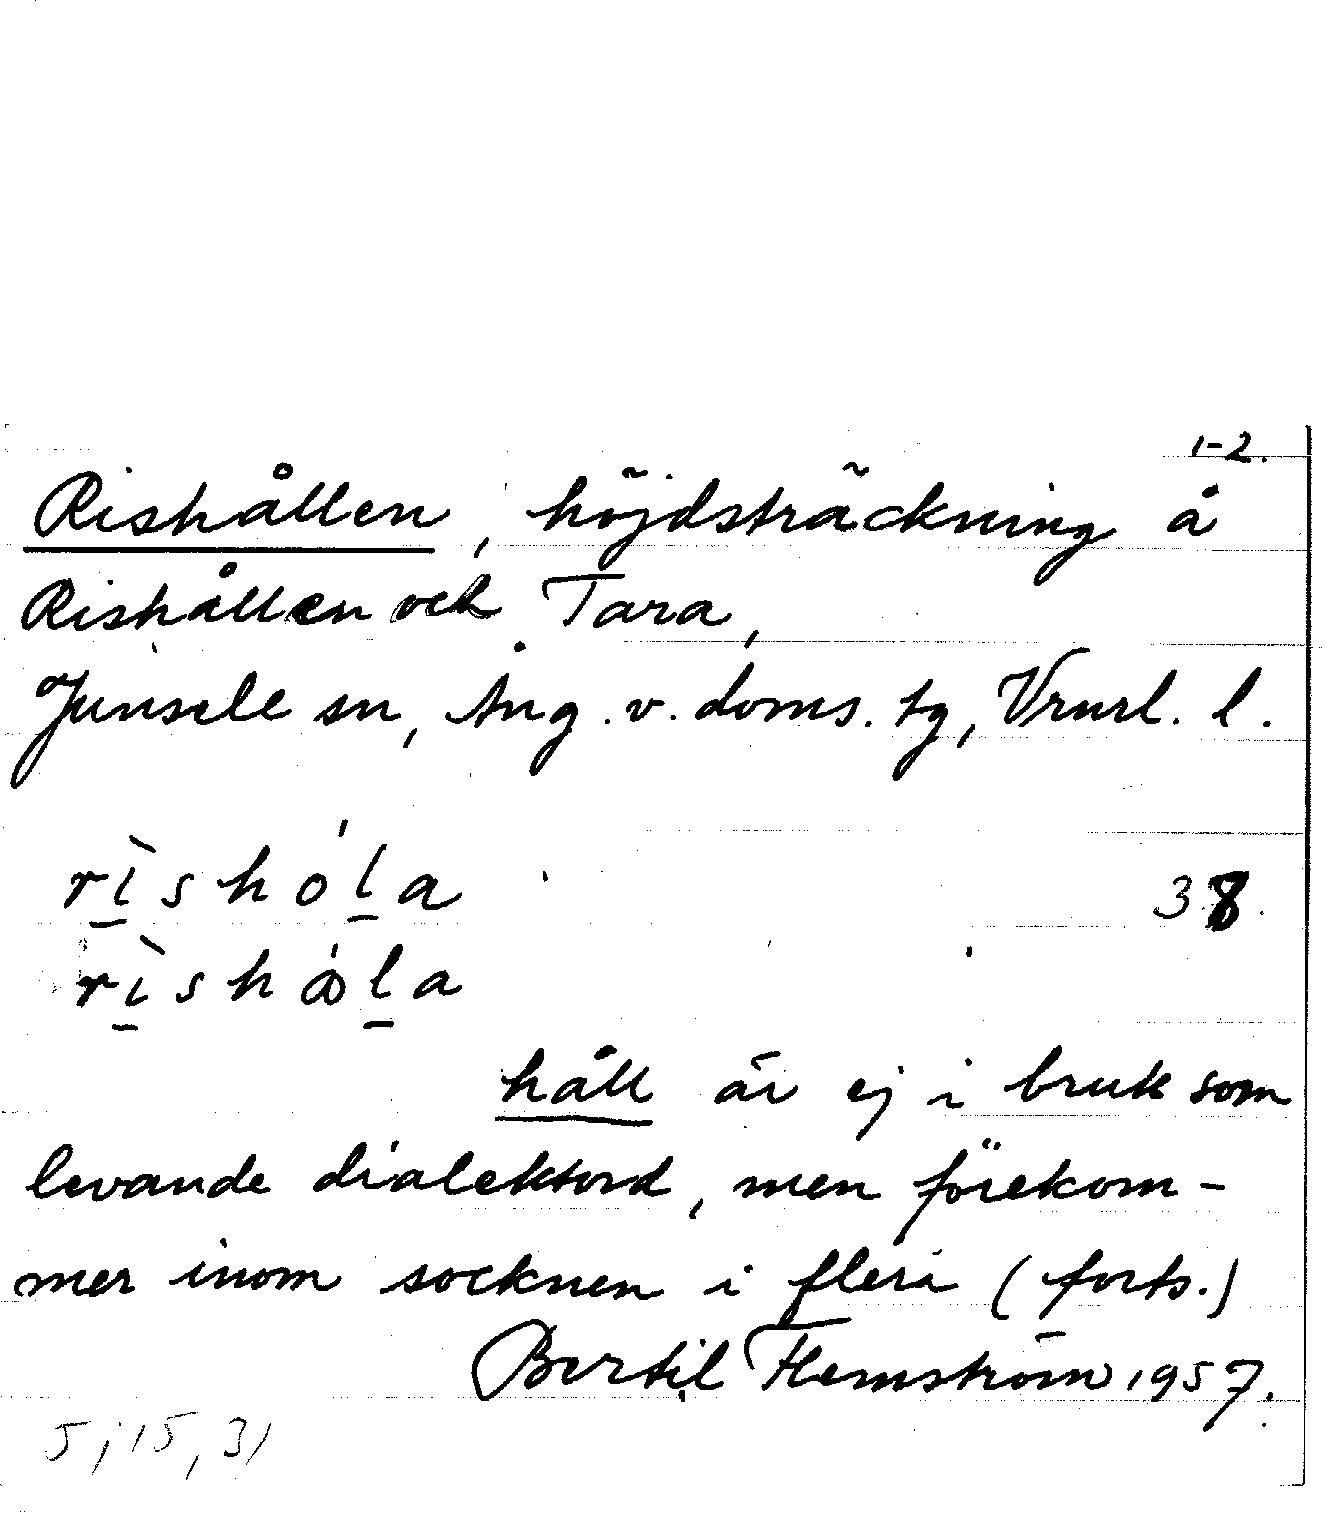 1-2.
Rishållen, höjdsträckning å
Rishållen och Tara,
Junsele sn, Ång. v. doms. tg, Vrurl. l.
rìshóla
38.
rìshåla
håll är ej i bruk som
levande dialektord, men förekom-
mer inom socknen i flera (forts.)
Bertil Flemström 1957.
5; 15, 31